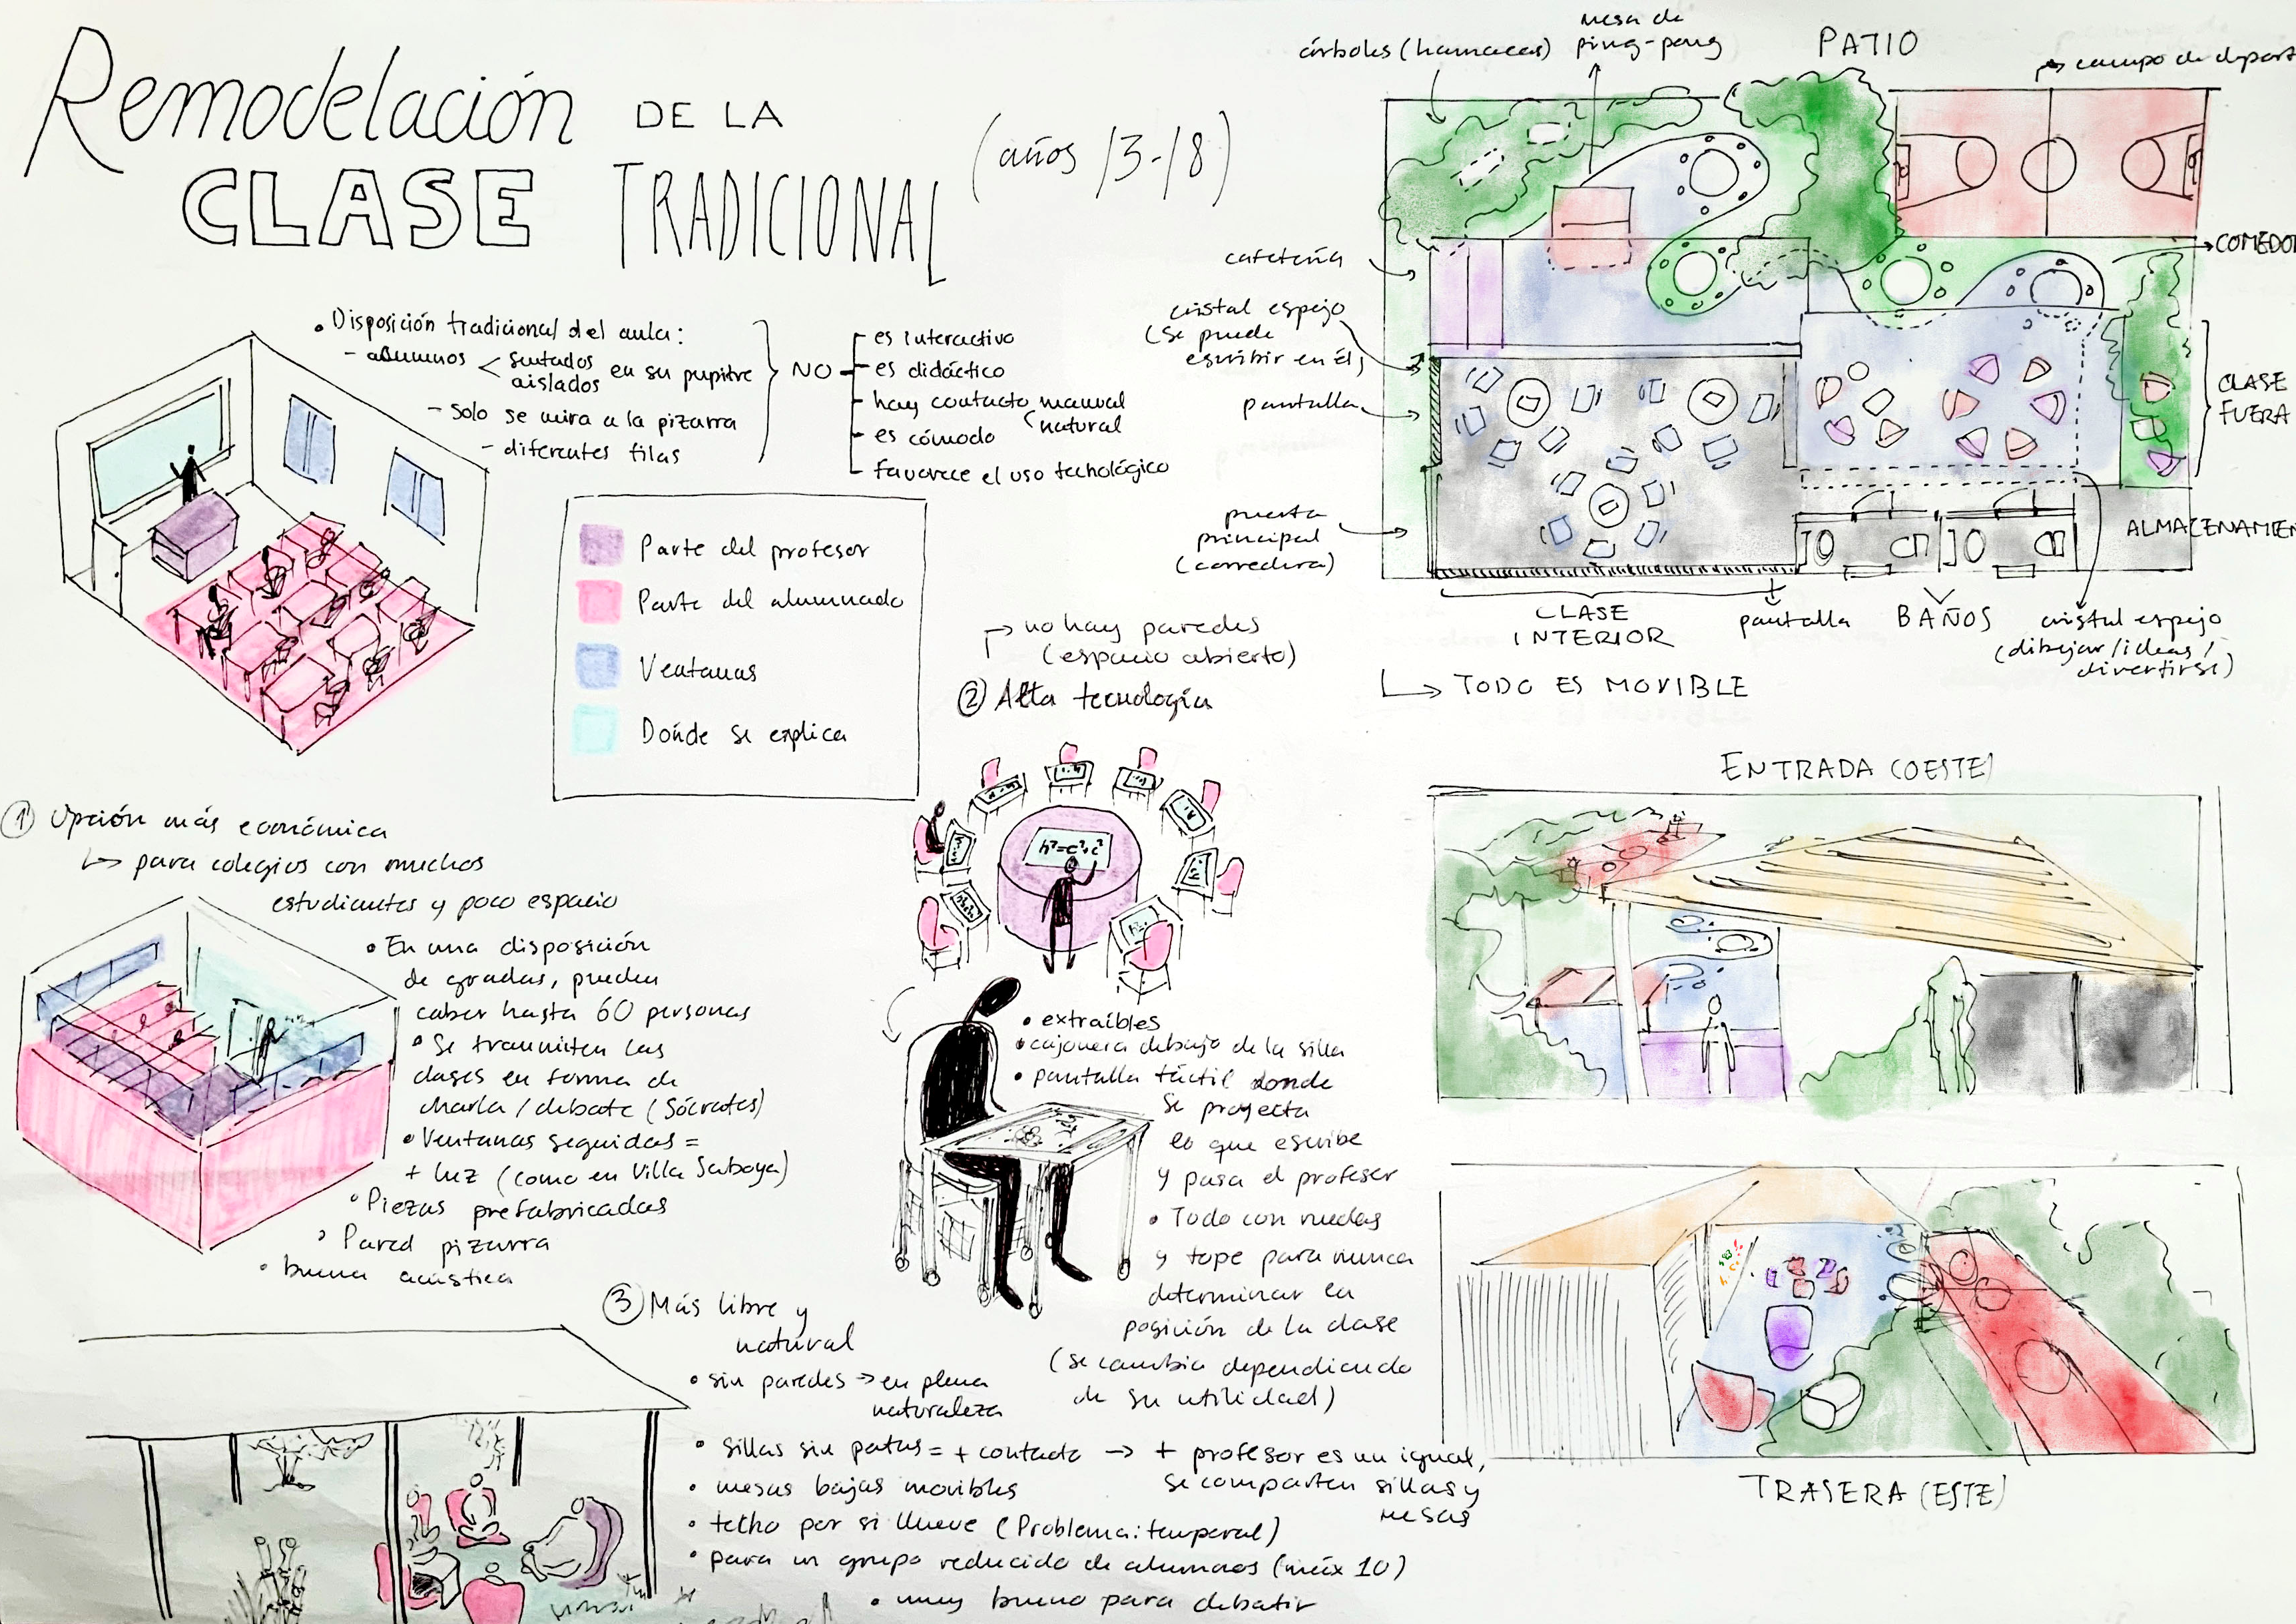 Remodelación DE LA
CLASE TRADICIONAL
(años 13-18)
• Disposición tradicional del aula:
- alumnos < sentados aislados en su pupitre
- Solo se mira a la pizarra
- diferentes filas
NO
es interactivo
es didáctico
hay contacto manual
natural
es cómodo
favorece el uso technológico
Parte del profesor
Parte del alumnado
Ventanas
Dónde se explica
① Opción más económica
↳ para colegios con muchos
estudiantes y poco espacio
• En una disposición
de gradas, pueden
caber hasta 60 personas
• Se transmiten las
clases en forma de
charla / debate (Sócrates)
• Ventanas seguidas =
+ luz (como en Villa Saboya)
• Piezas prefabricadas
• Pared pizarra
• buena acústica
→ no hay paredes
(espacio abierto)
② Alta tecnología
h²=c²+c²
• extraíbles
• cajonera debajo de la silla
• pantalla táctil donde
se proyecta
lo que escribe
y pasa el profesor
• Todo con ruedas
y tope para nunca
determinar la
posición de la clase
(se cambia dependiendo
de su utilidad)
③ Más libre y
natural
• sin paredes → en plena
naturaleza
• sillas sin patas = + contacto → + profesor es un igual,
se comparten sillas y
mesas
• mesas bajas movibles
• techo por si llueve (Problema: temporal)
• para un grupo reducido de alumnos (máx 10)
• muy bueno para debatir
árboles (hamacas)
mesa de
ping-pong
PATIO
→ campo de deport
cafetería
→ COMEDOR
cristal espejo
(se puede
escribir en él)
pantalla
CLASE
FUERA
puerta
principal
(corredera)
ALMACENAMIEN
CLASE
INTERIOR
pantalla
BAÑOS
cristal espejo
(dibujar / ideas /
divertirse)
↳ TODO ES MOVIBLE
ENTRADA (OESTE)
TRASERA (ESTE)